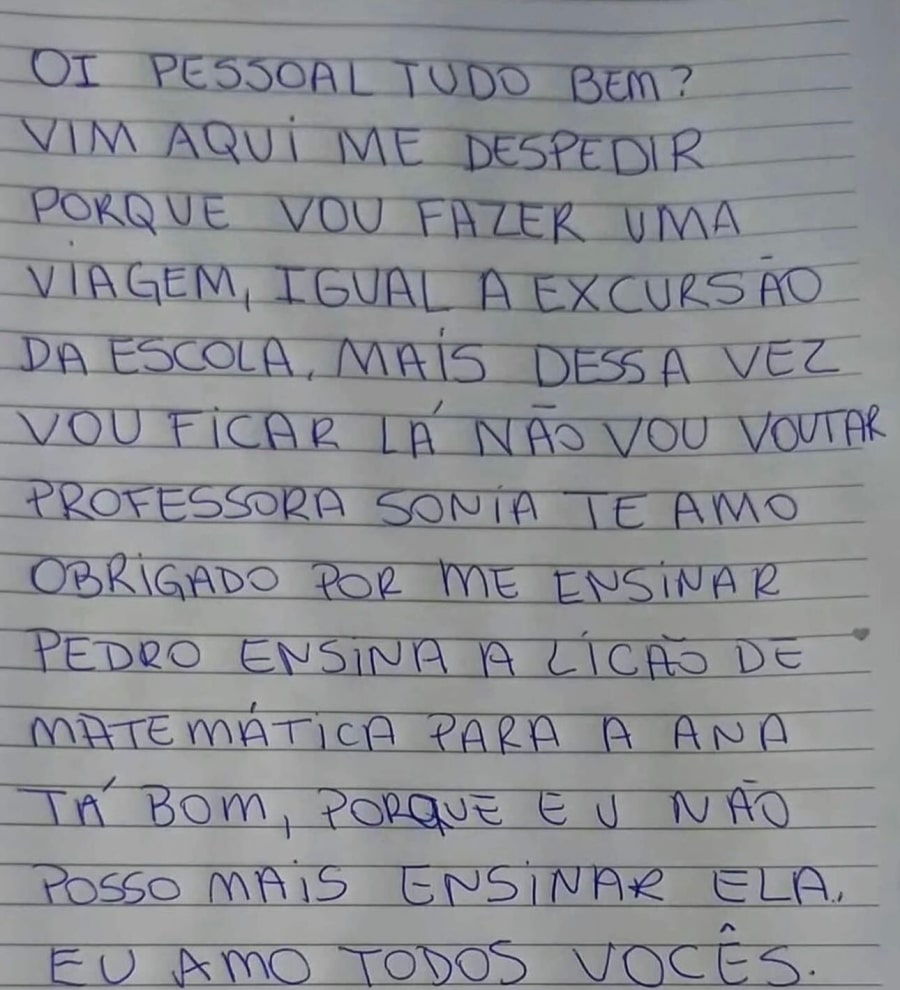 OI PESSOAL TUDO BEM?
VIM AQUI ME DESPEDIR
PORQUE VOU FAZER UMA
VIAGEM, IGUAL A EXCURSÃO
DA ESCOLA, MAIS DESSA VEZ
VOU FICAR LÁ NÃO VOU VOUTAR
PROFESSORA SONIA TE AMO
OBRIGADO POR ME ENSINAR
PEDRO ENSINA A LICÃO DE
MATEMÁTICA PARA A ANA
TÁ BOM, PORQUE EU NÃO
POSSO MAIS ENSINAR ELA.
EU AMO TODOS VOCÊS.